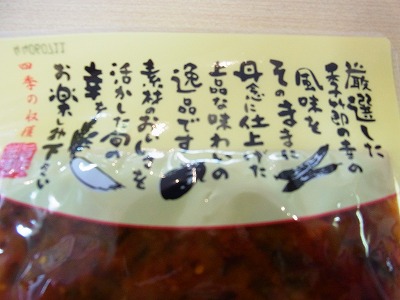 厳選した
季節の幸の
風味を
そのままに
丹念に仕上げた
上品な味わいの
逸品です。
素材のおいしさを
活かした旬の
幸を
お楽しみ下さい
四季の収穫